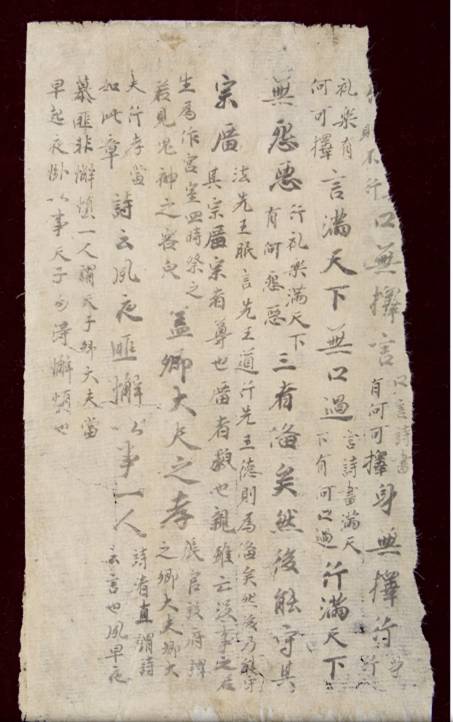 則不行口無擇言口言詩書有何可擇身無擇行
礼樂有何可擇言滿天下無口過言詩書滿天下有何口過行滿天下
無怨惡行礼樂滿天下有何怨惡三者俻矣然後能守其
宗廟法先王服言先王道行先王德則爲俻矣然後乃能守其宗廟宗者尊也廟者皃也親雖云没事之若
生爲作宮室四時祭之若見鬼神之容皃蓋卿大夫之孝張官設府謂之卿大夫卿大
夫行孝當如此章詩云夙夜匪懈以事一人詩者直謂詩云言也夙早夜
暮匪非懈惰一人謂天子卿大夫當
早起夜卧以事天子勿得懈惰也